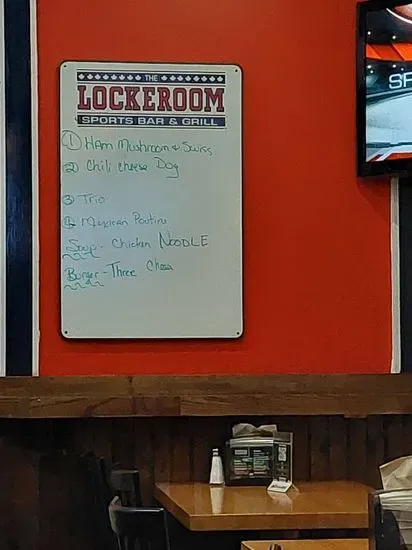 THE
LOCKEROOM
SPORTS BAR & GRILL
① Ham Mushroom & Swiss
② Chili cheese Dog
③ Trio
④ Mexican Poutine
Soup - Chicken NOODLE
Burger - Three Cheese
SP